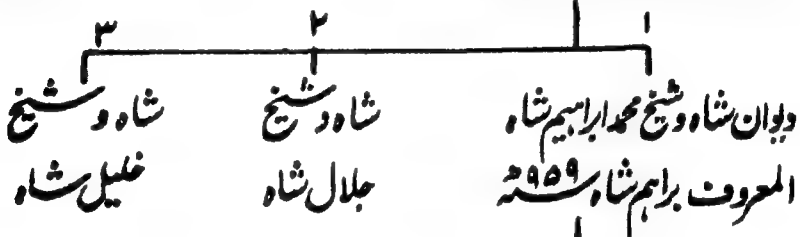 ۱ ۲ ۳
دیوان شاہ و شیخ محمد ابراہیم شاہ
المعروف براہم شاہ سنہ ۹۵۹ھ
شاہ و شیخ
جلال شاہ
شاہ و شیخ
خلیل شاہ